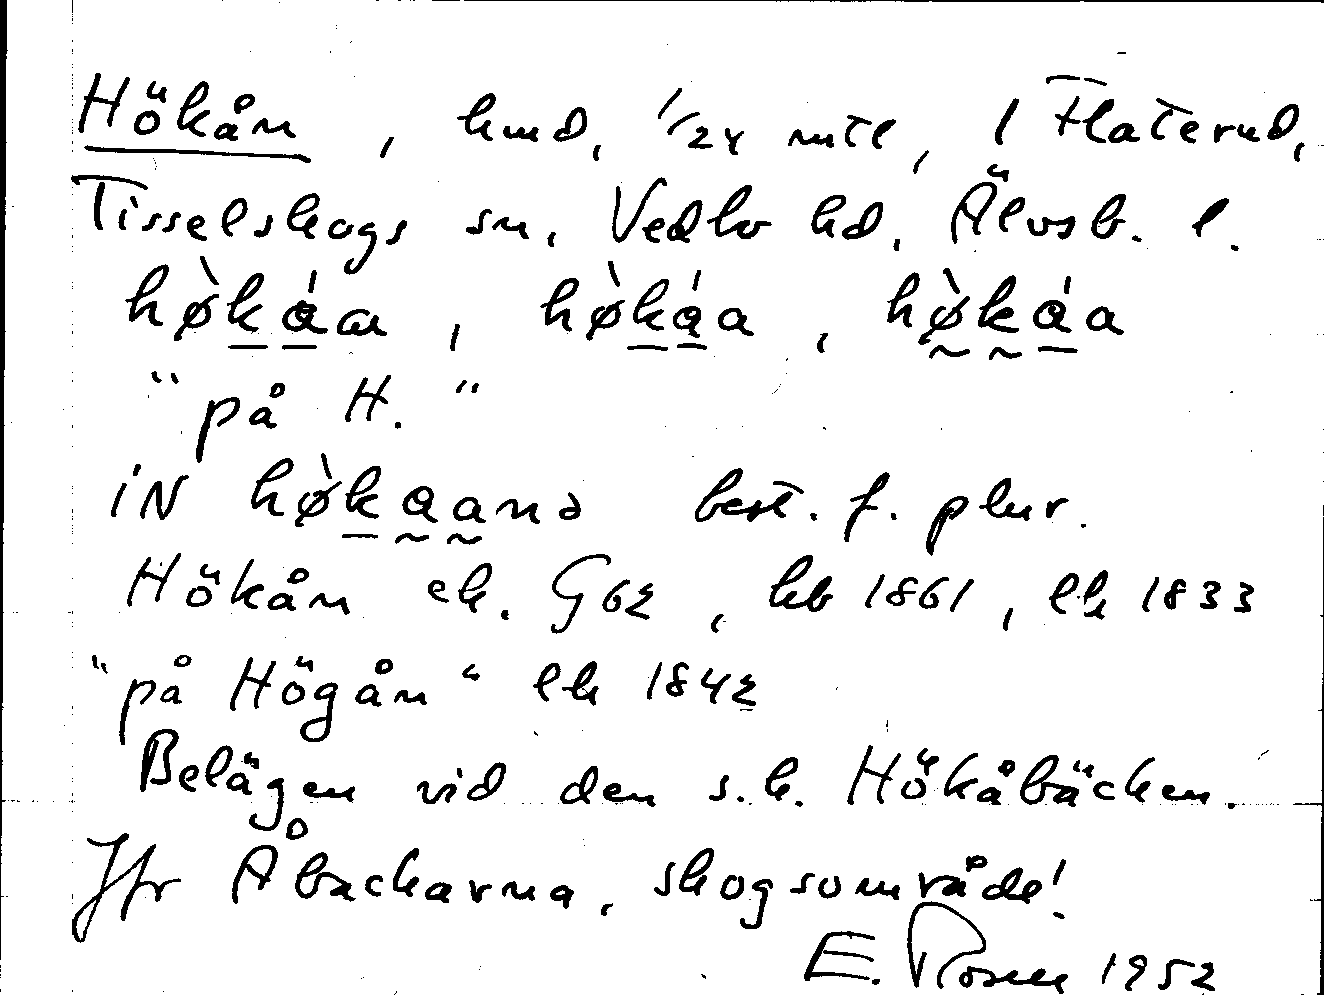 Hökån, hmd, 1/24 mtl, i Flaterud,
Tisselskogs sn, Vedbo hd, Älvsb. l.
hø̀ka̍a, hø̀ka̍a, hø̀ka̍a
"på H."
iN hø̀kaanə best. f. plur.
Hökån ek. G62, hb 1861, lk 1833
"på Högån" lk 1842
Belägen vid den s.k. Hökåbäcken.
Jfr Åbackarna, skogsområde!
E. Rosen 1952